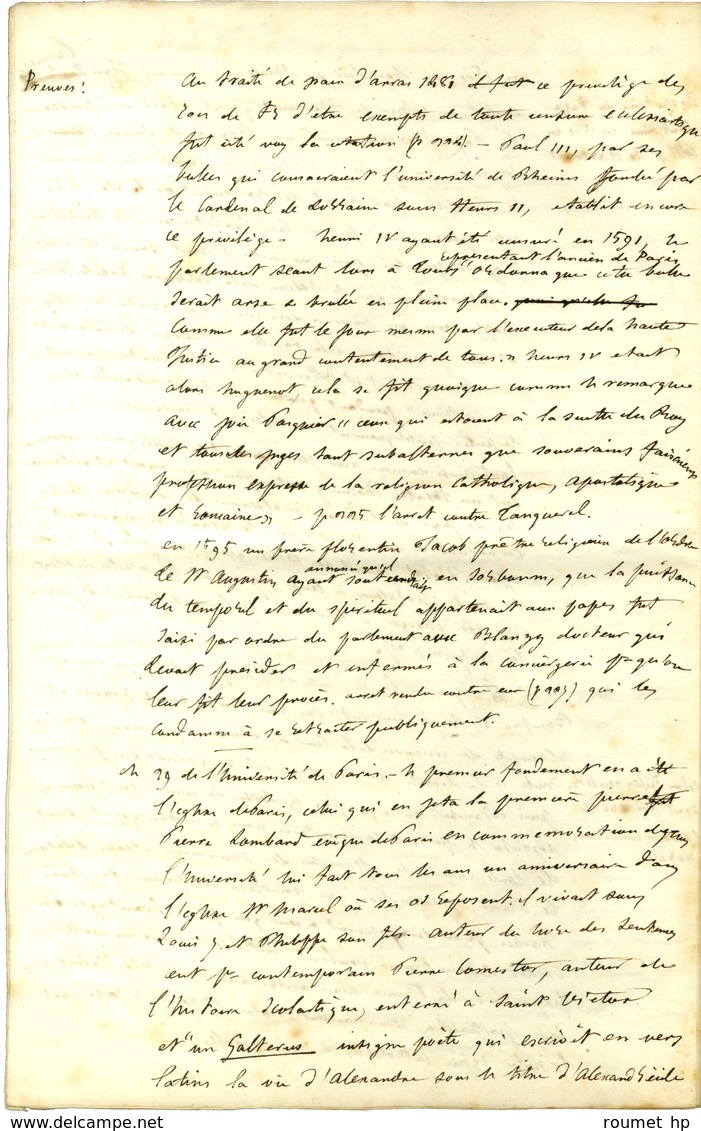 Preuves!
Au traité de paix d'arras 1481 il fut ce privilège des
rois de Fr d'etre exempts de toute censure ecclesiastique
fut cité voy la citation (p 224). – Paul III, par ses
bulles qui consacraient l'université de Rheims fondée par
le Cardinal de Lorraine sous Henri II, etablit encore
ce privilège. henri IV ayant été censuré en 1591, le
representant l'ancien de Paris
parlement seant lors à Tours ordonna que cette bulle
serait arse et brulée en pleine place.
comme elle fut le jour mesme par l'executeur de la haute
Justice au grand contentement de tous. » henri IV etait
alors huguenot, cela se fit quoique comme le remarque
avec joie Pasquier « ceux qui estoient à la suitte du Roy
et tous les juges tant subalternes que souverains faisaient
profession expresse de la religion Catholique, apostolique
et romaine » – p 225 l'arret contre Tanquerel.
en 1595 un frère florentin Jacob prêtre religieux de l'ordre
annoncé qu'il
de St Augustin ayant soutenu en Sorbonne, que la puissance
du temporel et du spirituel appartenait aux papes fut
saisi par ordre du parlement avec Blanzy docteur qui
devait presider et enfermés à la conciergerie jsqu'on
leur fit leur procès. arret rendu contre eux (p 225) qui les
condamne à se retracter publiquement.
ch 29 de l'Université de Paris. – le premier fondement en a été
l'eglise de Paris, celui qui en jeta la première pierre fut
Pierre Lombard evêque de Paris en commemoration de quoy
l'Université lui fait tous les ans un anniversaire dans
l'eglise St Marcel où ses os reposent. il vivait sous
Louis 7 et Philippe son fils. auteur du livre des Sentences
eut pr contemporain Pierre Comestor, auteur de
l'histoire scolastique, enterré à saint Victor
et "un Galterus insigne poète qui escrivit en vers
latins la vie d'Alexandre sous le titre d'Alexandreide
roumet hp